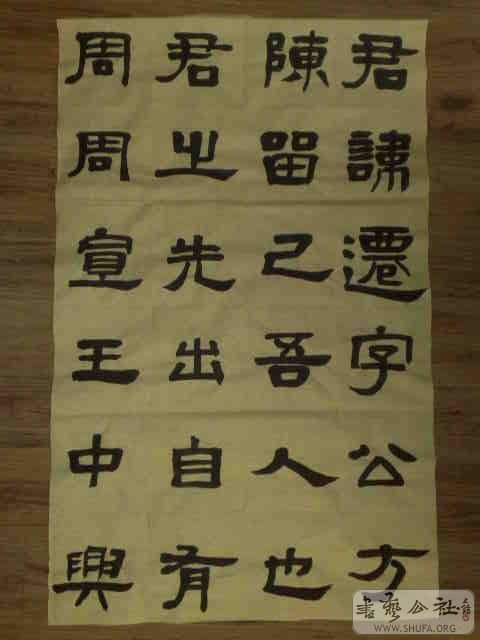 君諱遷字公方
陳留己吾人也
君之先出自有
周周宣王中興
書藝公社
WWW.SHUFA.ORG